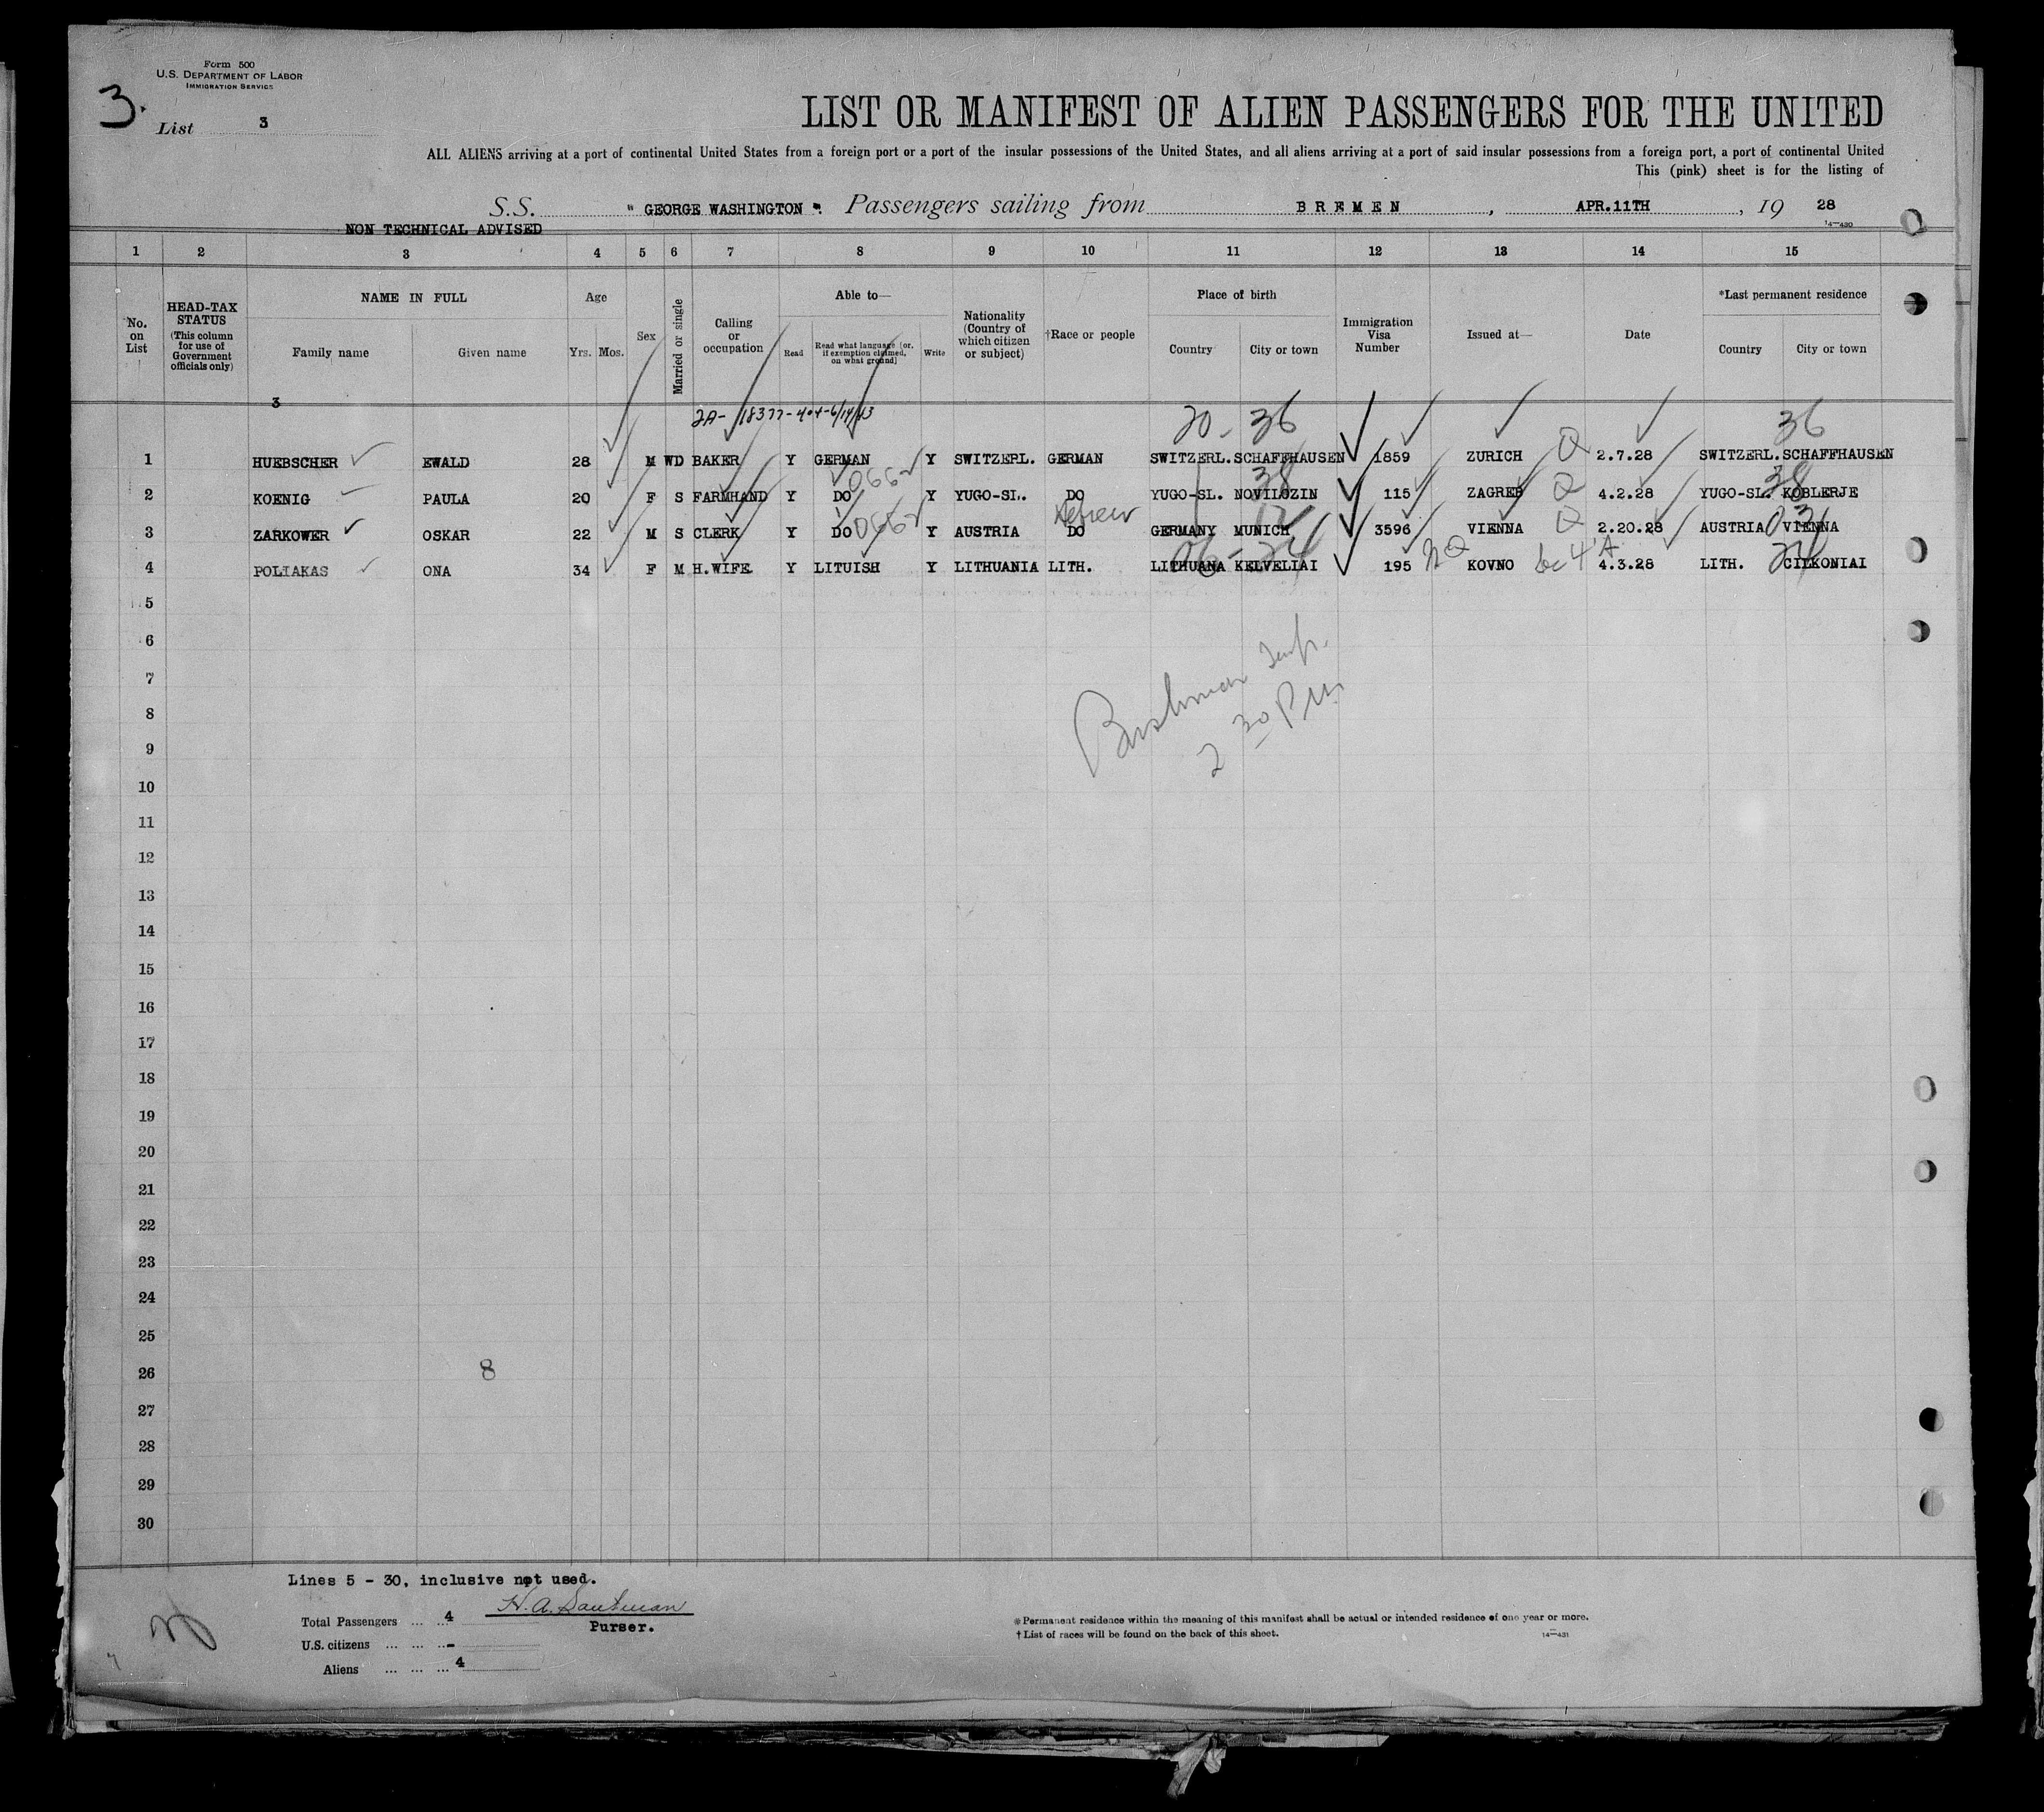 Form 500
U.S. DEPARTMENT OF LABOR
IMMIGRATION SERVICE
3.
List 3
LIST OR MANIFEST OF ALIEN PASSENGERS FOR THE UNITED
ALL ALIENS arriving at a port of continental United States from a foreign port or a port of the insular possessions of the United States, and all aliens arriving at a port of said insular possessions from a foreign port, a port of continental United
This (pink) sheet is for the listing of
S.S. " GEORGE WASHINGTON ". Passengers sailing from BREMEN, APR.11TH, 19 28
14—430
NON TECHNICAL ADVISED
1 2 3 4 5 6 7 8 9 10 11 12 13 14 15
No. on List
HEAD-TAX STATUS (This column for use of Government officials only)
NAME IN FULL
Family name Given name
Age
Yrs. Mos.
Sex
Married or single
Calling or occupation
Able to—
Read
Read what language [or, if exemption claimed, on what ground]
Write
Nationality (Country of which citizen or subject)
†Race or people
Place of birth
Country City or town
Immigration Visa Number
Issued at—
Date
*Last permanent residence
Country City or town
3
2A- 18377-404-6/14/43
20 - 36 36
1 HUEBSCHER EWALD 28 M WD BAKER Y GERMAN Y SWITZERL. GERMAN SWITZERL. SCHAFFHAUSEN 1859 ZURICH Q 2.7.28 SWITZERL. SCHAFFHAUSEN
38 38
2 KOENIG PAULA 20 F S FARMHAND Y DO Y YUGO-SL. DO YUGO-SL. NOVILOZIN 115 ZAGREB Q 4.2.28 YUGO-SL. KOBLERJE
Hebrew
3 ZARKOWER OSKAR 22 M S CLERK Y DO Y AUSTRIA DO GERMANY MUNICH 3596 VIENNA Q 2.20.28 AUSTRIA VIENNA
06 - 24 24
4 POLIAKAS ONA 34 F M H.WIFE Y LITUISH Y LITHUANIA LITH. LITHUANA KELVELIAI 195 NQ KOVNO 4.3.28 LITH. CILKONIAI
5
6
7
8
9
10
11
12
13
14
15
16
17
18
19
20
21
22
23
24
25
26
27
28
29
30
2 30 PM
8
Lines 5 - 30, inclusive not used.
Total Passengers ... ... 4
Purser.
U.S. citizens ... ... ... -
Aliens ... ... ... 4
*Permanent residence within the meaning of this manifest shall be actual or intended residence of one year or more.
†List of races will be found on the back of this sheet.
14—431